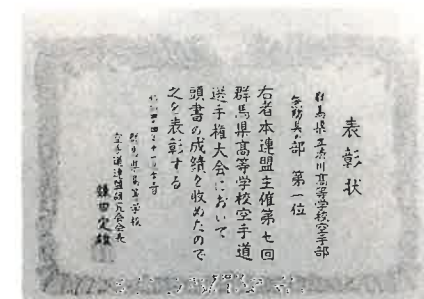 表彰状
群馬県立渋川高等学校空手部
無防具の部 第一位
右者本連盟主催第七回
群馬県高等学校空手道
選手権大会において
頭書の成績を収めたので
之を表彰する
群馬県高等学校
空手道連盟
鎌田定雄